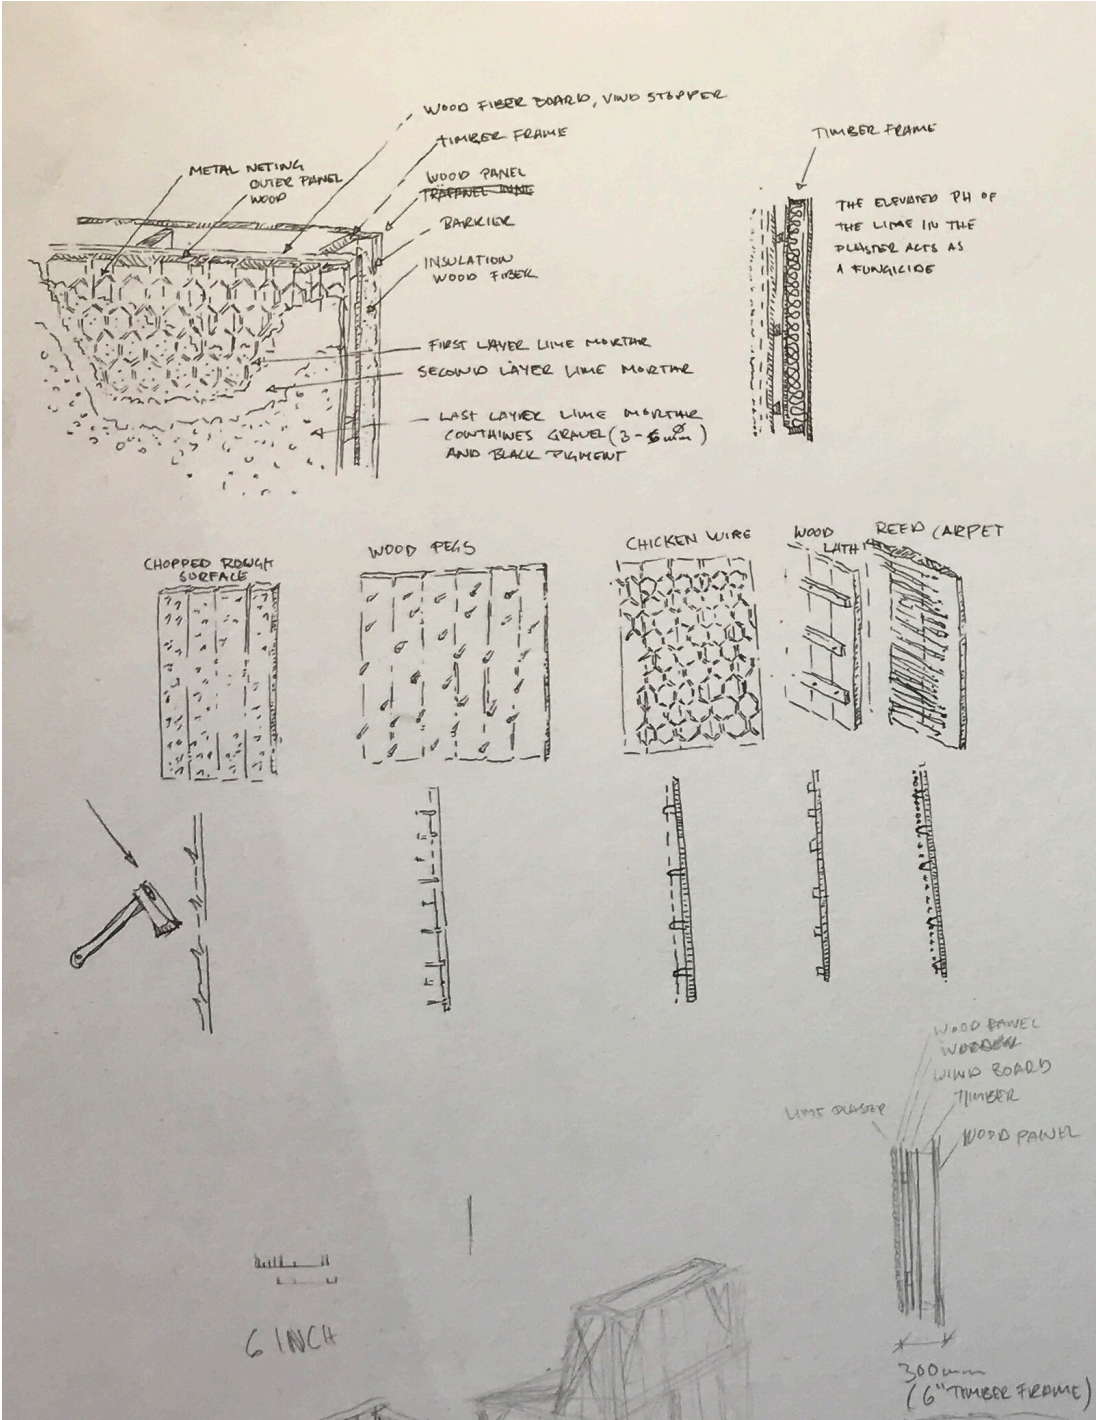 WOOD FIBER BOARD, VIND STOPPER
TIMBER FRAME
METAL NETING
OUTER PANEL
WOOD
WOOD PANEL
BARRIER
INSULATION
WOOD FIBER
FIRST LAYER LIME MORTAR
SECOND LAYER LIME MORTAR
LAST LAYER LIME MORTAR
CONTAINES GRAVEL (3-6mm)
AND BLACK PIGMENT
TIMBER FRAME
THE ELEVATED PH OF
THE LIME IN THE
PLASTER ACTS AS
A FUNGICIDE
CHOPPED ROUGH
SURFACE
WOOD PEGS
CHICKEN WIRE
WOOD
LATH
REED CARPET
WOOD PANEL
WIND BOARD
TIMBER
LIME PLASTER
WOOD PANEL
6 INCH
300mm
(6" TIMBER FRAME)